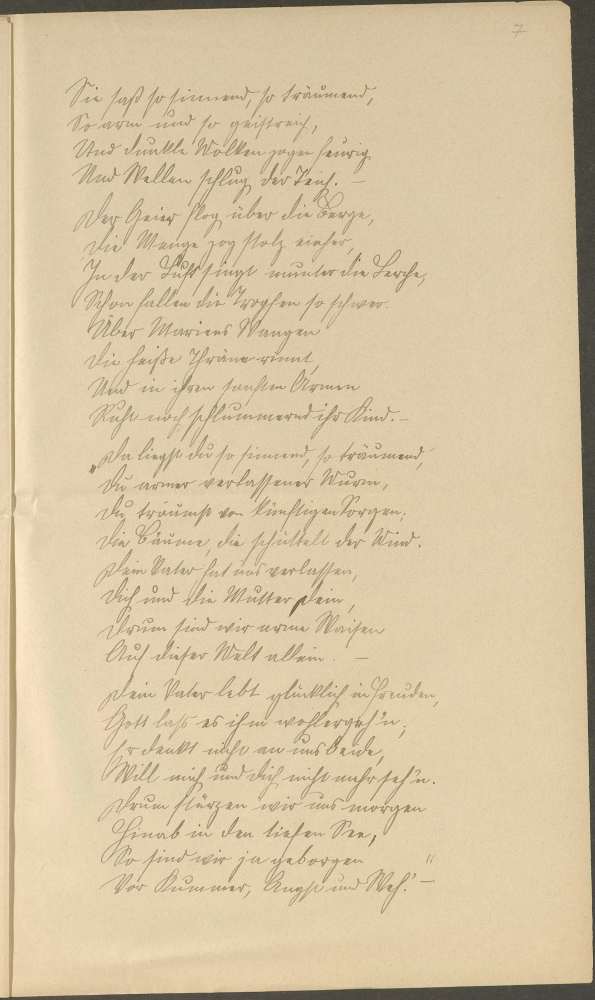 7
Sie saß so sinnend, so träumend,
So arm und so geistreich,
Und dunkle Wolken zogen
Und Wellen schlug der Teich. –
Der Geier flog über die Berge,
Die Mange zog stolz einher,
In der Luft singt munter die Lerche,
Schon fallen die Tropfen so schwer.
Über Mariens Wangen
Die heiße Thräne rinnt,
Und in ihren sanften Armen
Ruht noch schlummernd ihr Kind. –
„Da liegst du so sinnend, so träumend,
Du armer verlassener Wurm,
Du träumst von künftigen Sorgen,
Die Bäume, die schüttelt der Wind.
Dein Vater hat uns verlassen,
Dich und die Mutter dein,
Drum sind wir arme Waisen
Auf dieser Welt allein. –
Dein Vater lebt glücklich in Freuden,
Gott lass es ihm wohlergeh'n,
Er denkt nicht an uns beide,
Will mich und dich nicht mehr seh'n.
Drum stürzen wir uns morgen
Hinab in den tiefen See,
So sind wir ja geborgen
Vor Kummer, Angst und Weh!" –